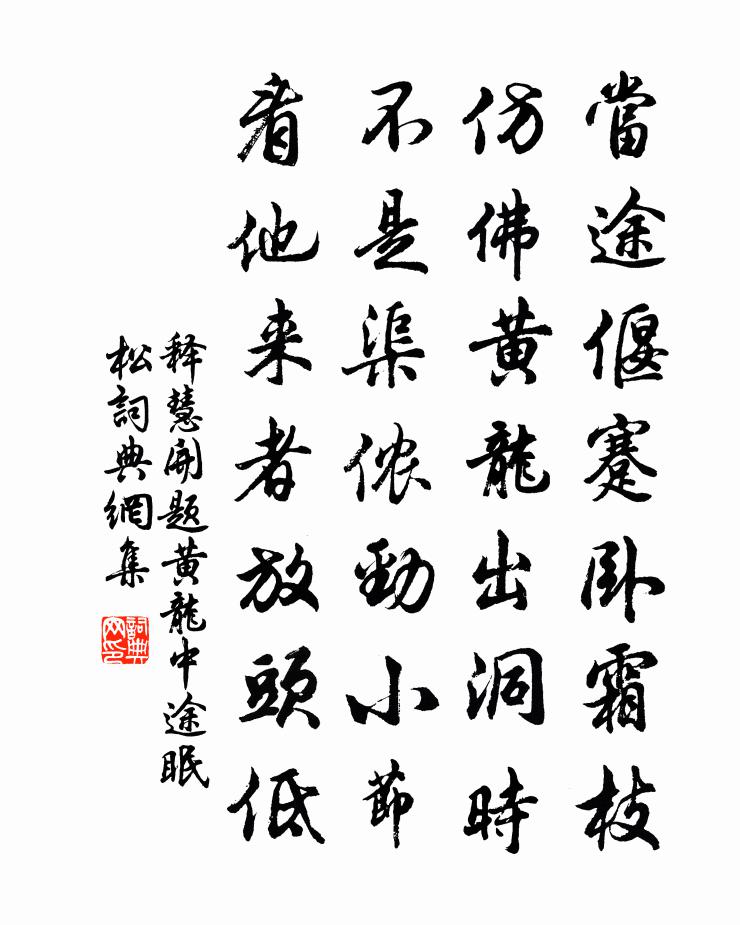 當途偃蹇卧霜枝
仿佛黄龍出洞時
不是渠侬勁小節
看他来者放頭低
释慧開題黄龍中途眠
松詞典網集
詞典网印